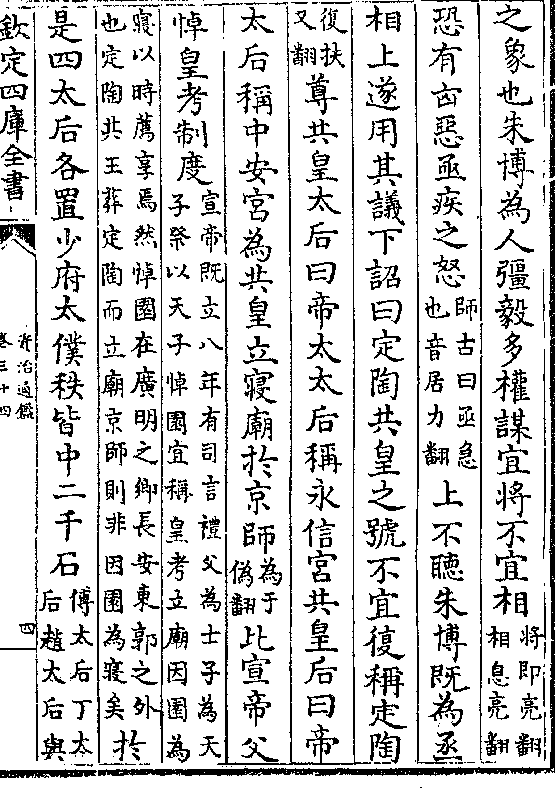 之象也朱博為人彊毅多權謀宜將不宜相將即亮翻相息亮翻
恐有凶惡亟疾之怒師古曰亟急也音居力翻上不聽朱博既為丞
相上遂用其議下詔曰定陶共皇之號不宜復稱定陶
復扶又翻尊共皇太后曰帝太太后稱永信宮共皇后曰帝
太后稱中安宮為共皇立寢廟於京師為于偽翻比宣帝父
悼皇考制度宣帝既立八年有司言禮父為士子為天子祭以天子悼園宜稱皇考立廟因園為
寢以時薦享焉然悼園在廣明之鄉長安東郭之外也定陶共王葬定陶而立廟京師則非因園為寢矣於
是四太后各置少府太僕秩皆中二千石傅太后丁太后趙太后與
欽定四庫全書
資治通鑑
卷三十四
四